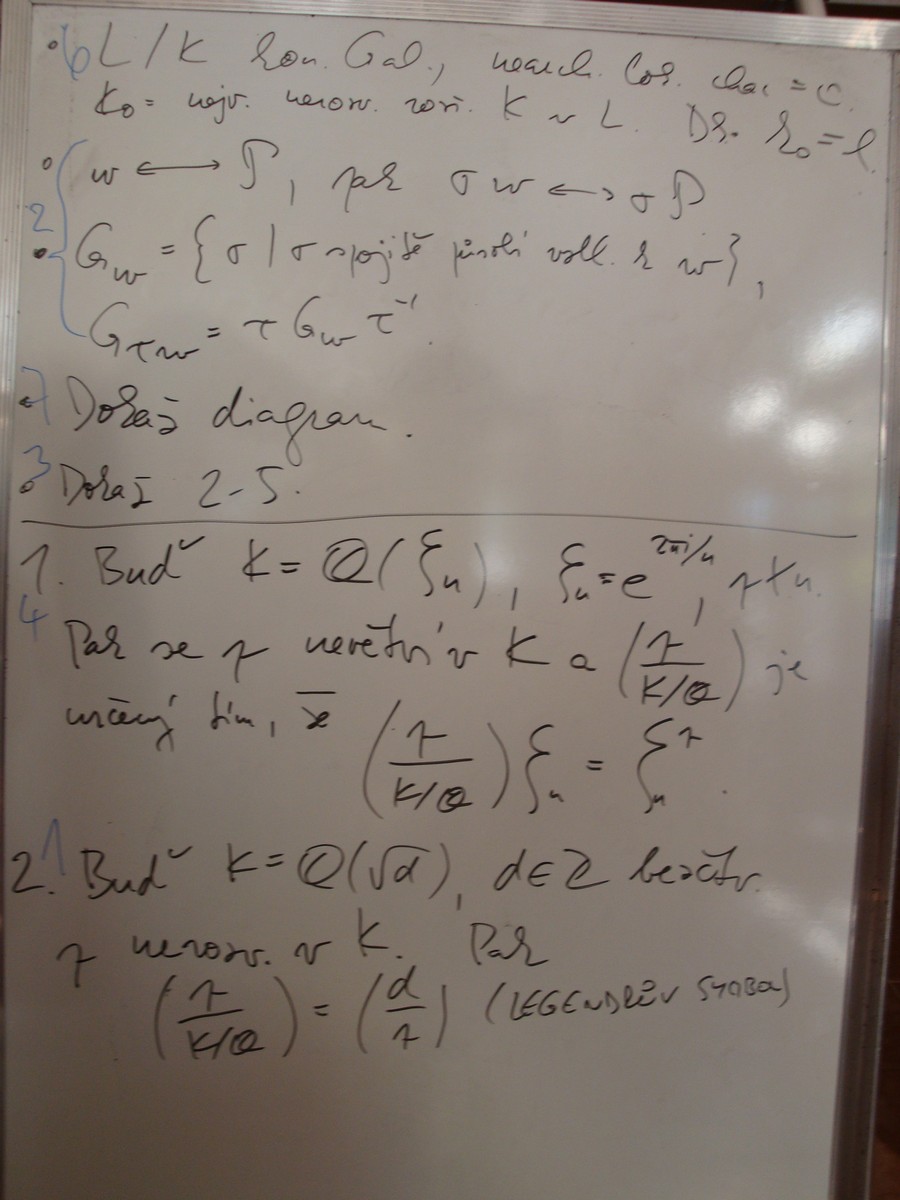 6 L/K kon. Gal., nearch. lok. char = 0.
K₀ = nejv. nerozv. rozš. K v L. Dk. k₀ = l
w ⟷ P, pak σw ⟷ σP
2 G_w = {σ | σ spojitě působí vzhl. k w},
G_{τw} = τ G_w τ⁻¹.
Dokaž diagram.
3 Dokaž 2-5.
1. Buď K = ℚ(ξₙ), ξₙ = e^{2πi/n}, p∤n.
4 Pak se p nevětví v K a (p / K/ℚ) je
určený tím, že (p / K/ℚ) ξₙ = ξₙ^p.
2. 1 Buď K = ℚ(√d), d∈ℤ bezčtv.
p nerozv. v K. Pak
(p / K/ℚ) = (d / p) (LEGENDRŮV SYMBOL)